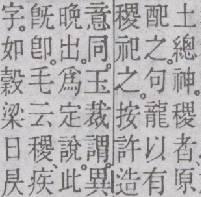 土總神。稷者。原
配之。句龍以有
稷祀之。按許造
意同。玉裁謂異
晚出。爲定說。此
旣卽。毛云稷疾
字。如穀梁日昃